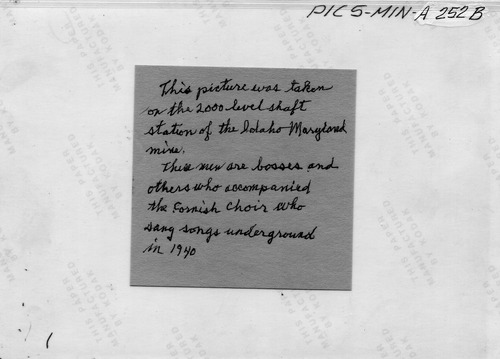 PICS-MIN-A 252B
This picture was taken
on the 2000 level shaft
station of the Idaho Maryland
mine.
These men are bosses and
others who accompanied
the Cornish Choir who
sang songs underground
in 1940
THIS PAPER
MANUFACTURED
BY KODAK